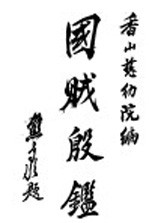 香山慈幼院編
國賊殷鑑
熊希齡題